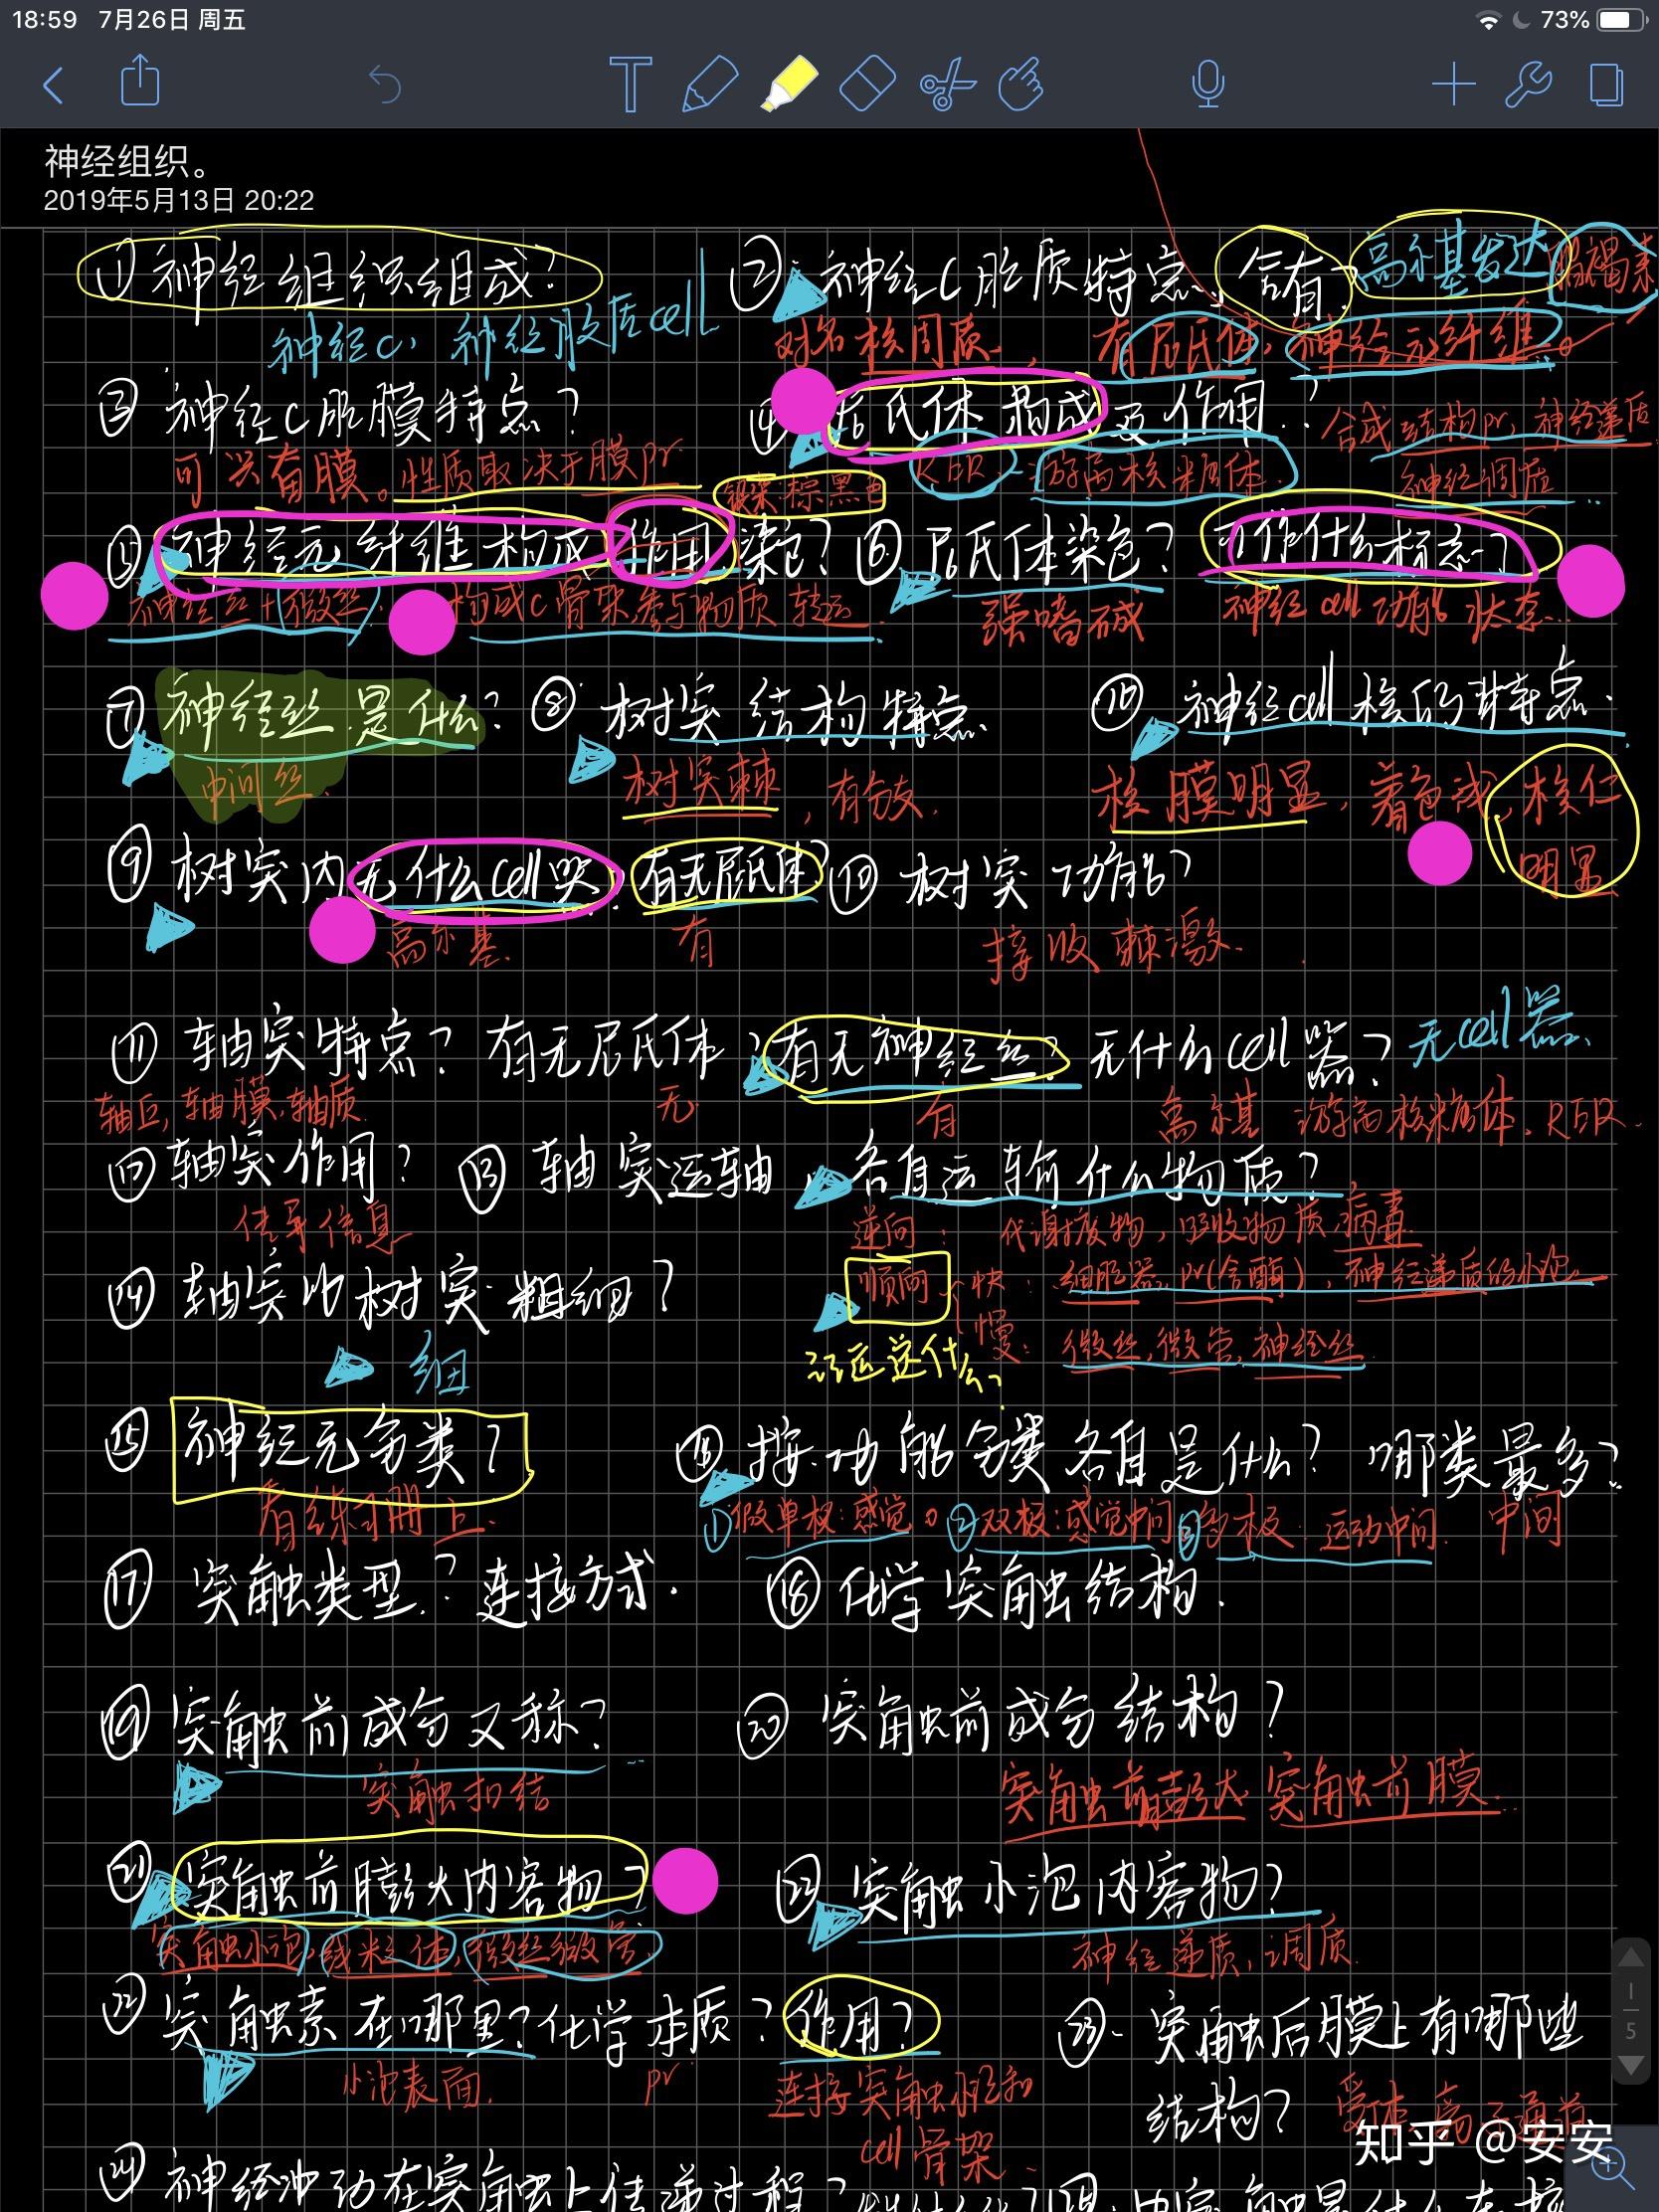 18:59 7月26日 周五 73%
神经组织。
2019年5月13日 20:22
① 神经组织组成? ② 神经C胞质特点、含有? 高尔基发达 脂褐素
神经C, 神经胶质cell 又名核周质, 有尼氏体, 神经元纤维
③ 神经C胞膜特点? ④ 尼氏体 构成及作用? 合成结构pr, 神经递质
可兴奋膜。性质取决于膜pr RER 游离核糖体. 神经调质
银染:棕黑色
⑤ 神经元纤维构成 作用 染色? ⑥ 尼氏体染色? 可作什么标志?
神经丝+微丝. 构成C骨架参与物质转运 强嗜碱 神经cell功能状态
⑦ 神经丝是什么? ⑧ 树突结构特点. ⑩ 神经cell核的特点.
中间丝. 树突棘, 有分支. 核膜明显, 着色浅, 核仁
明显
⑨ 树突内无什么cell器 有无尼氏体? ⑩ 树突功能?
高尔基. 有 接收刺激.
⑪ 轴突特点? 有无尼氏体? 有无神经丝? 无什么cell器? 无cell器.
轴丘, 轴膜, 轴质. 无 有 高尔基 游离核糖体. RER.
⑫ 轴突作用? ⑬ 轴突运输, 各自运输什么物质?
传导信息 逆向: 代谢废物, 吸收物质, 病毒.
⑭ 轴突比树突粗细? 顺向 快: 细胞器, pr(含酶), 神经递质的小泡
慢: 微丝, 微管, 神经丝
细 运送什么?
⑮ 神经元分类? ⑯ 按功能分类各自是什么? 哪类最多?
看练习册上. ①假单极:感觉 ②双极:感觉中间 ③多极: 运动中间. 中间
⑰ 突触类型? 连接方式. ⑱ 化学突触结构.
⑲ 突触前成分又称? ⑳ 突触前成分结构?
突触扣结 突触前膨大 突触前膜.
㉑ 突触前膨大内容物? ㉒ 突触小泡内容物?
突触小泡, 线粒体, 微丝微管. 神经递质, 调质.
㉒ 突触素在哪里? 化学本质? 作用? ㉓ 突触后膜上有哪些
小泡表面. pr 连接突触小泡和 结构? 受体 离子通道
cell骨架.
知乎 @安安
1
5
㉔ 神经冲动在突触上传递过程?